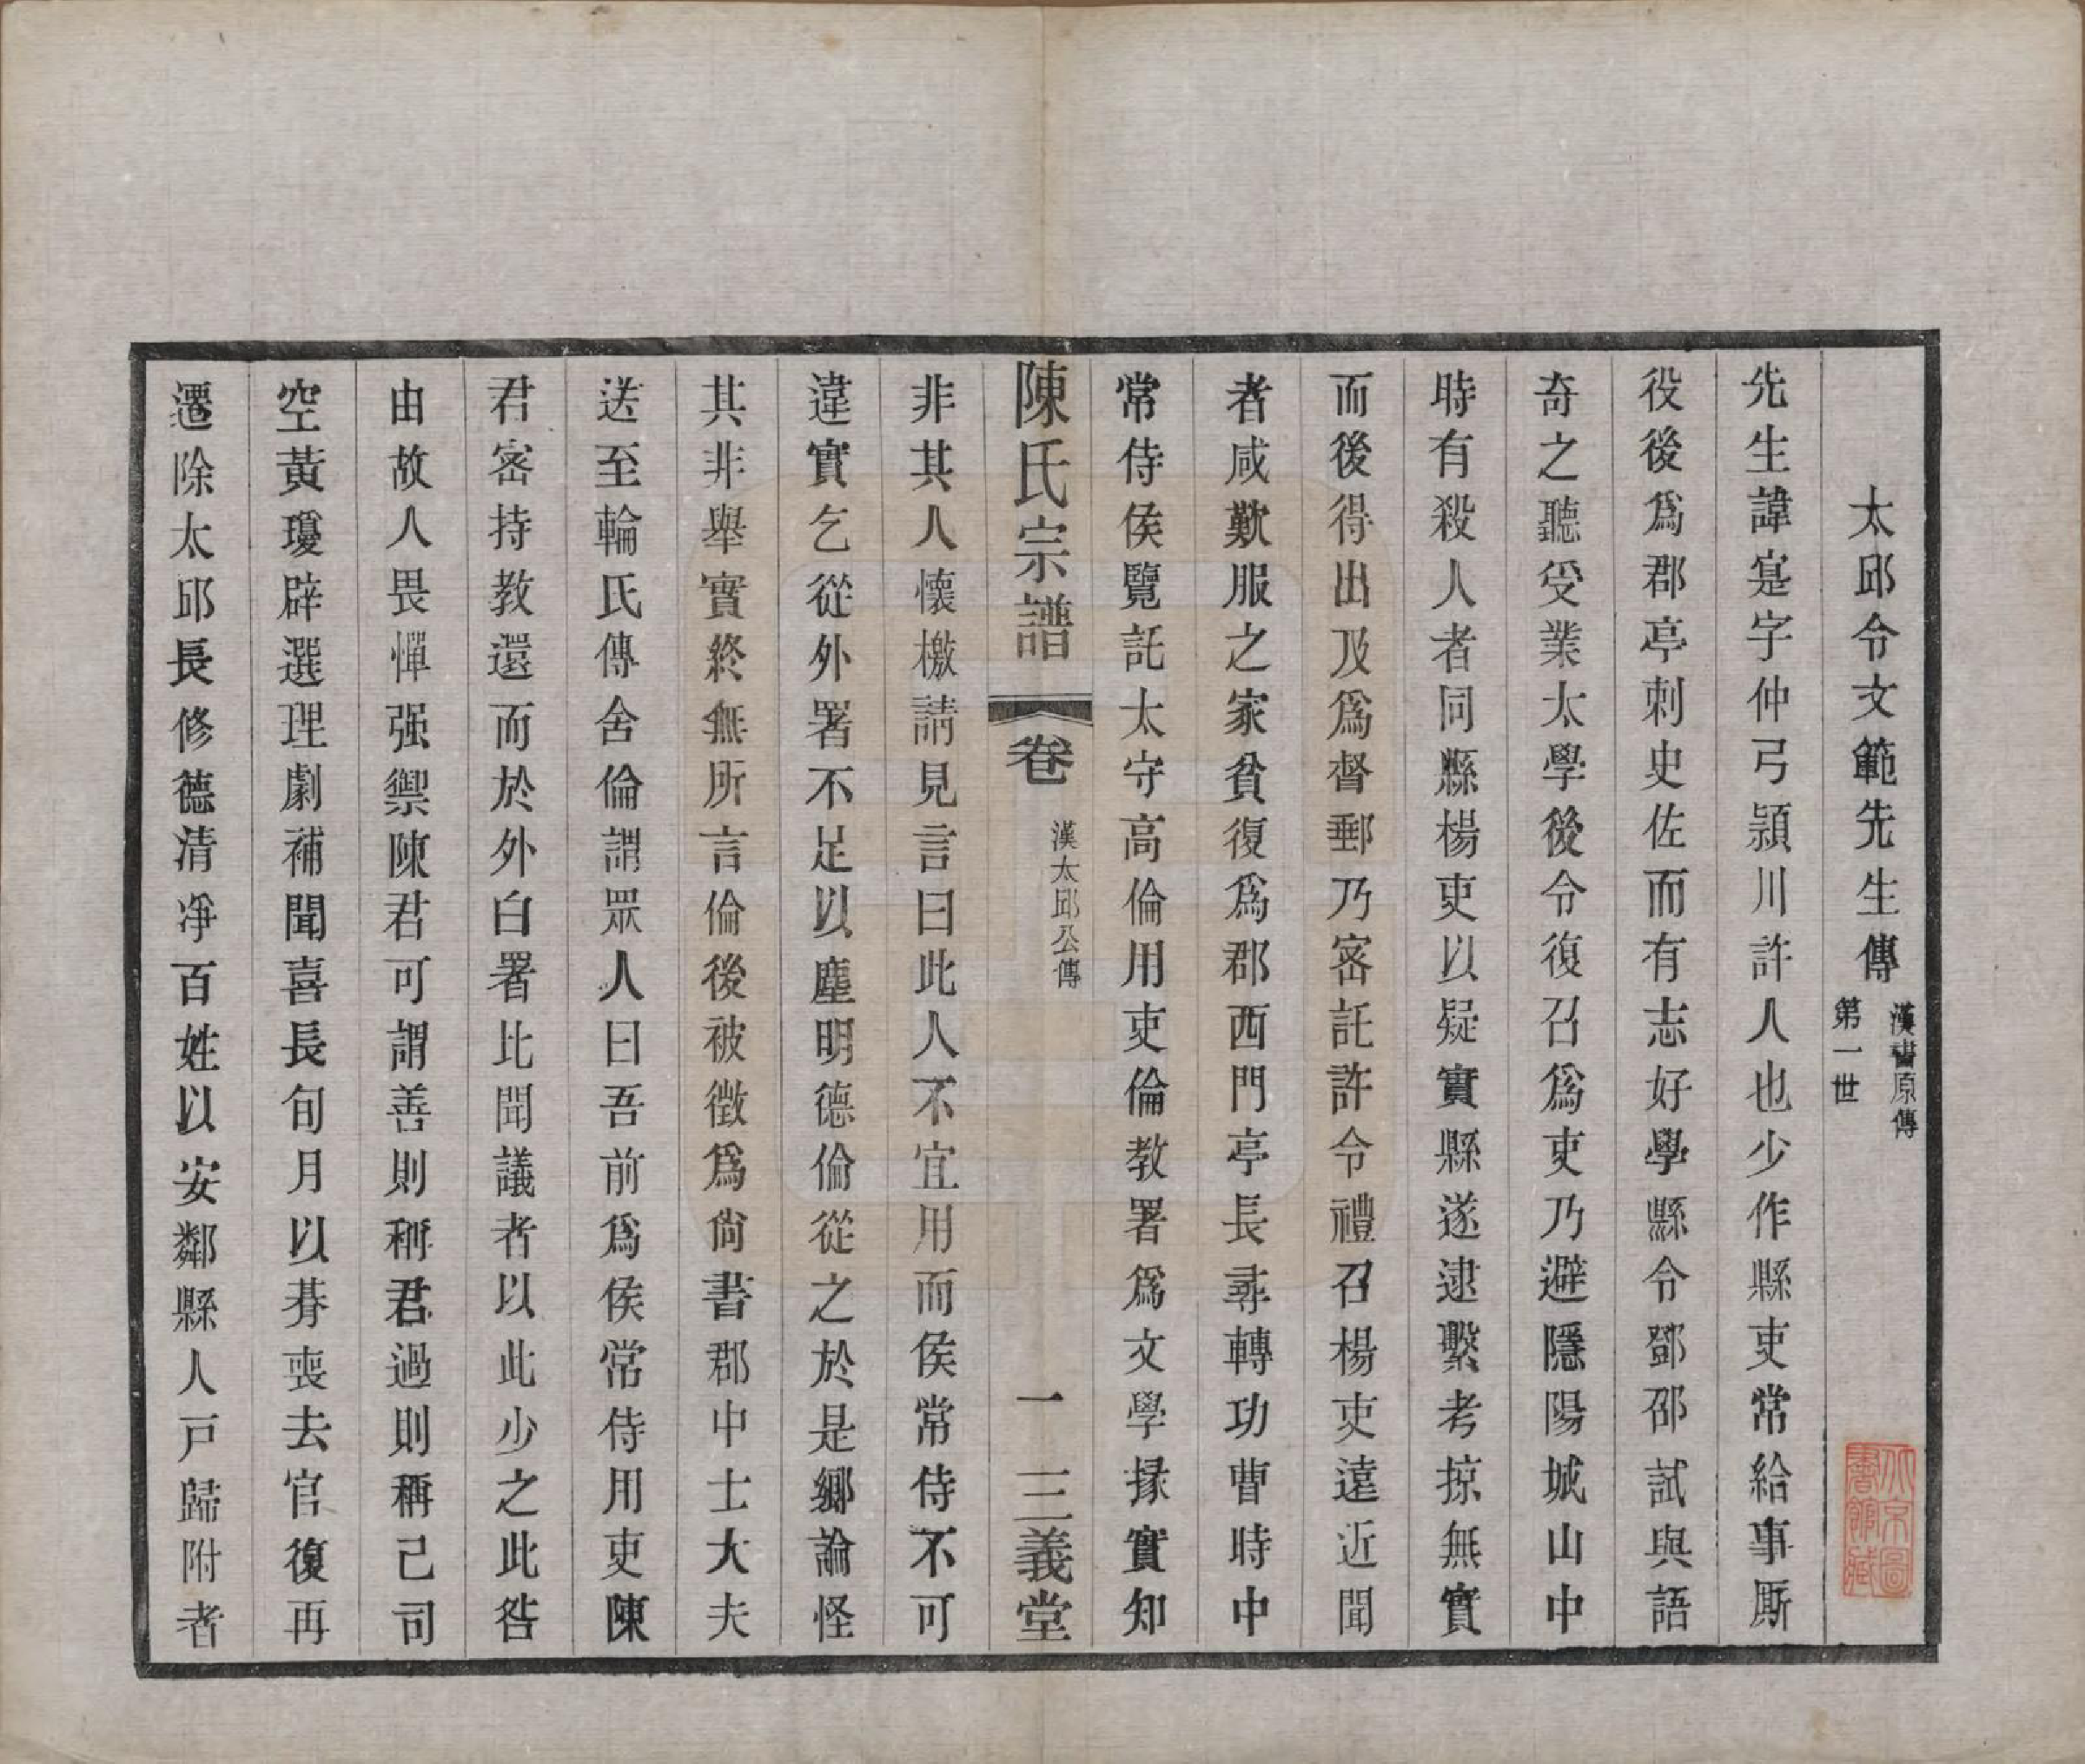 太邱令文範先生傳 漢書原傳 第一世
先生諱寔字仲弓潁川許人也少作縣吏常給事厮
役後爲郡亭刺史佐而有志好學縣令鄧邵試與語
奇之聽受業太學後令復召爲吏乃避隱陽城山中
時有殺人者同縣楊吏以疑實縣遂逮繫考掠無實
而後得出及爲督郵乃密託許令禮召楊吏遠近聞
者咸歎服之家貧復爲郡西門亭長尋轉功曹時中
常侍侯覽託太守高倫用吏倫教署爲文學掾實知
陳氏宗譜 卷 漢太邱公傳 一 三義堂
非其人懷檄請見言曰此人不宜用而侯常侍不可
違實乞從外署不足以塵明德倫從之於是鄉論怪
其非舉實終無所言倫後被徵爲尙書郡中士大夫
送至輪氏傳舍倫謂眾人曰吾前爲侯常侍用吏陳
君密持教還而於外白署比聞議者以此少之此咎
由故人畏憚强禦陳君可謂善則稱君過則稱己司
空黃瓊辟選理劇補聞喜長旬月以朞喪去官復再
遷除太邱長修德清凈百姓以安鄰縣人戸歸附者